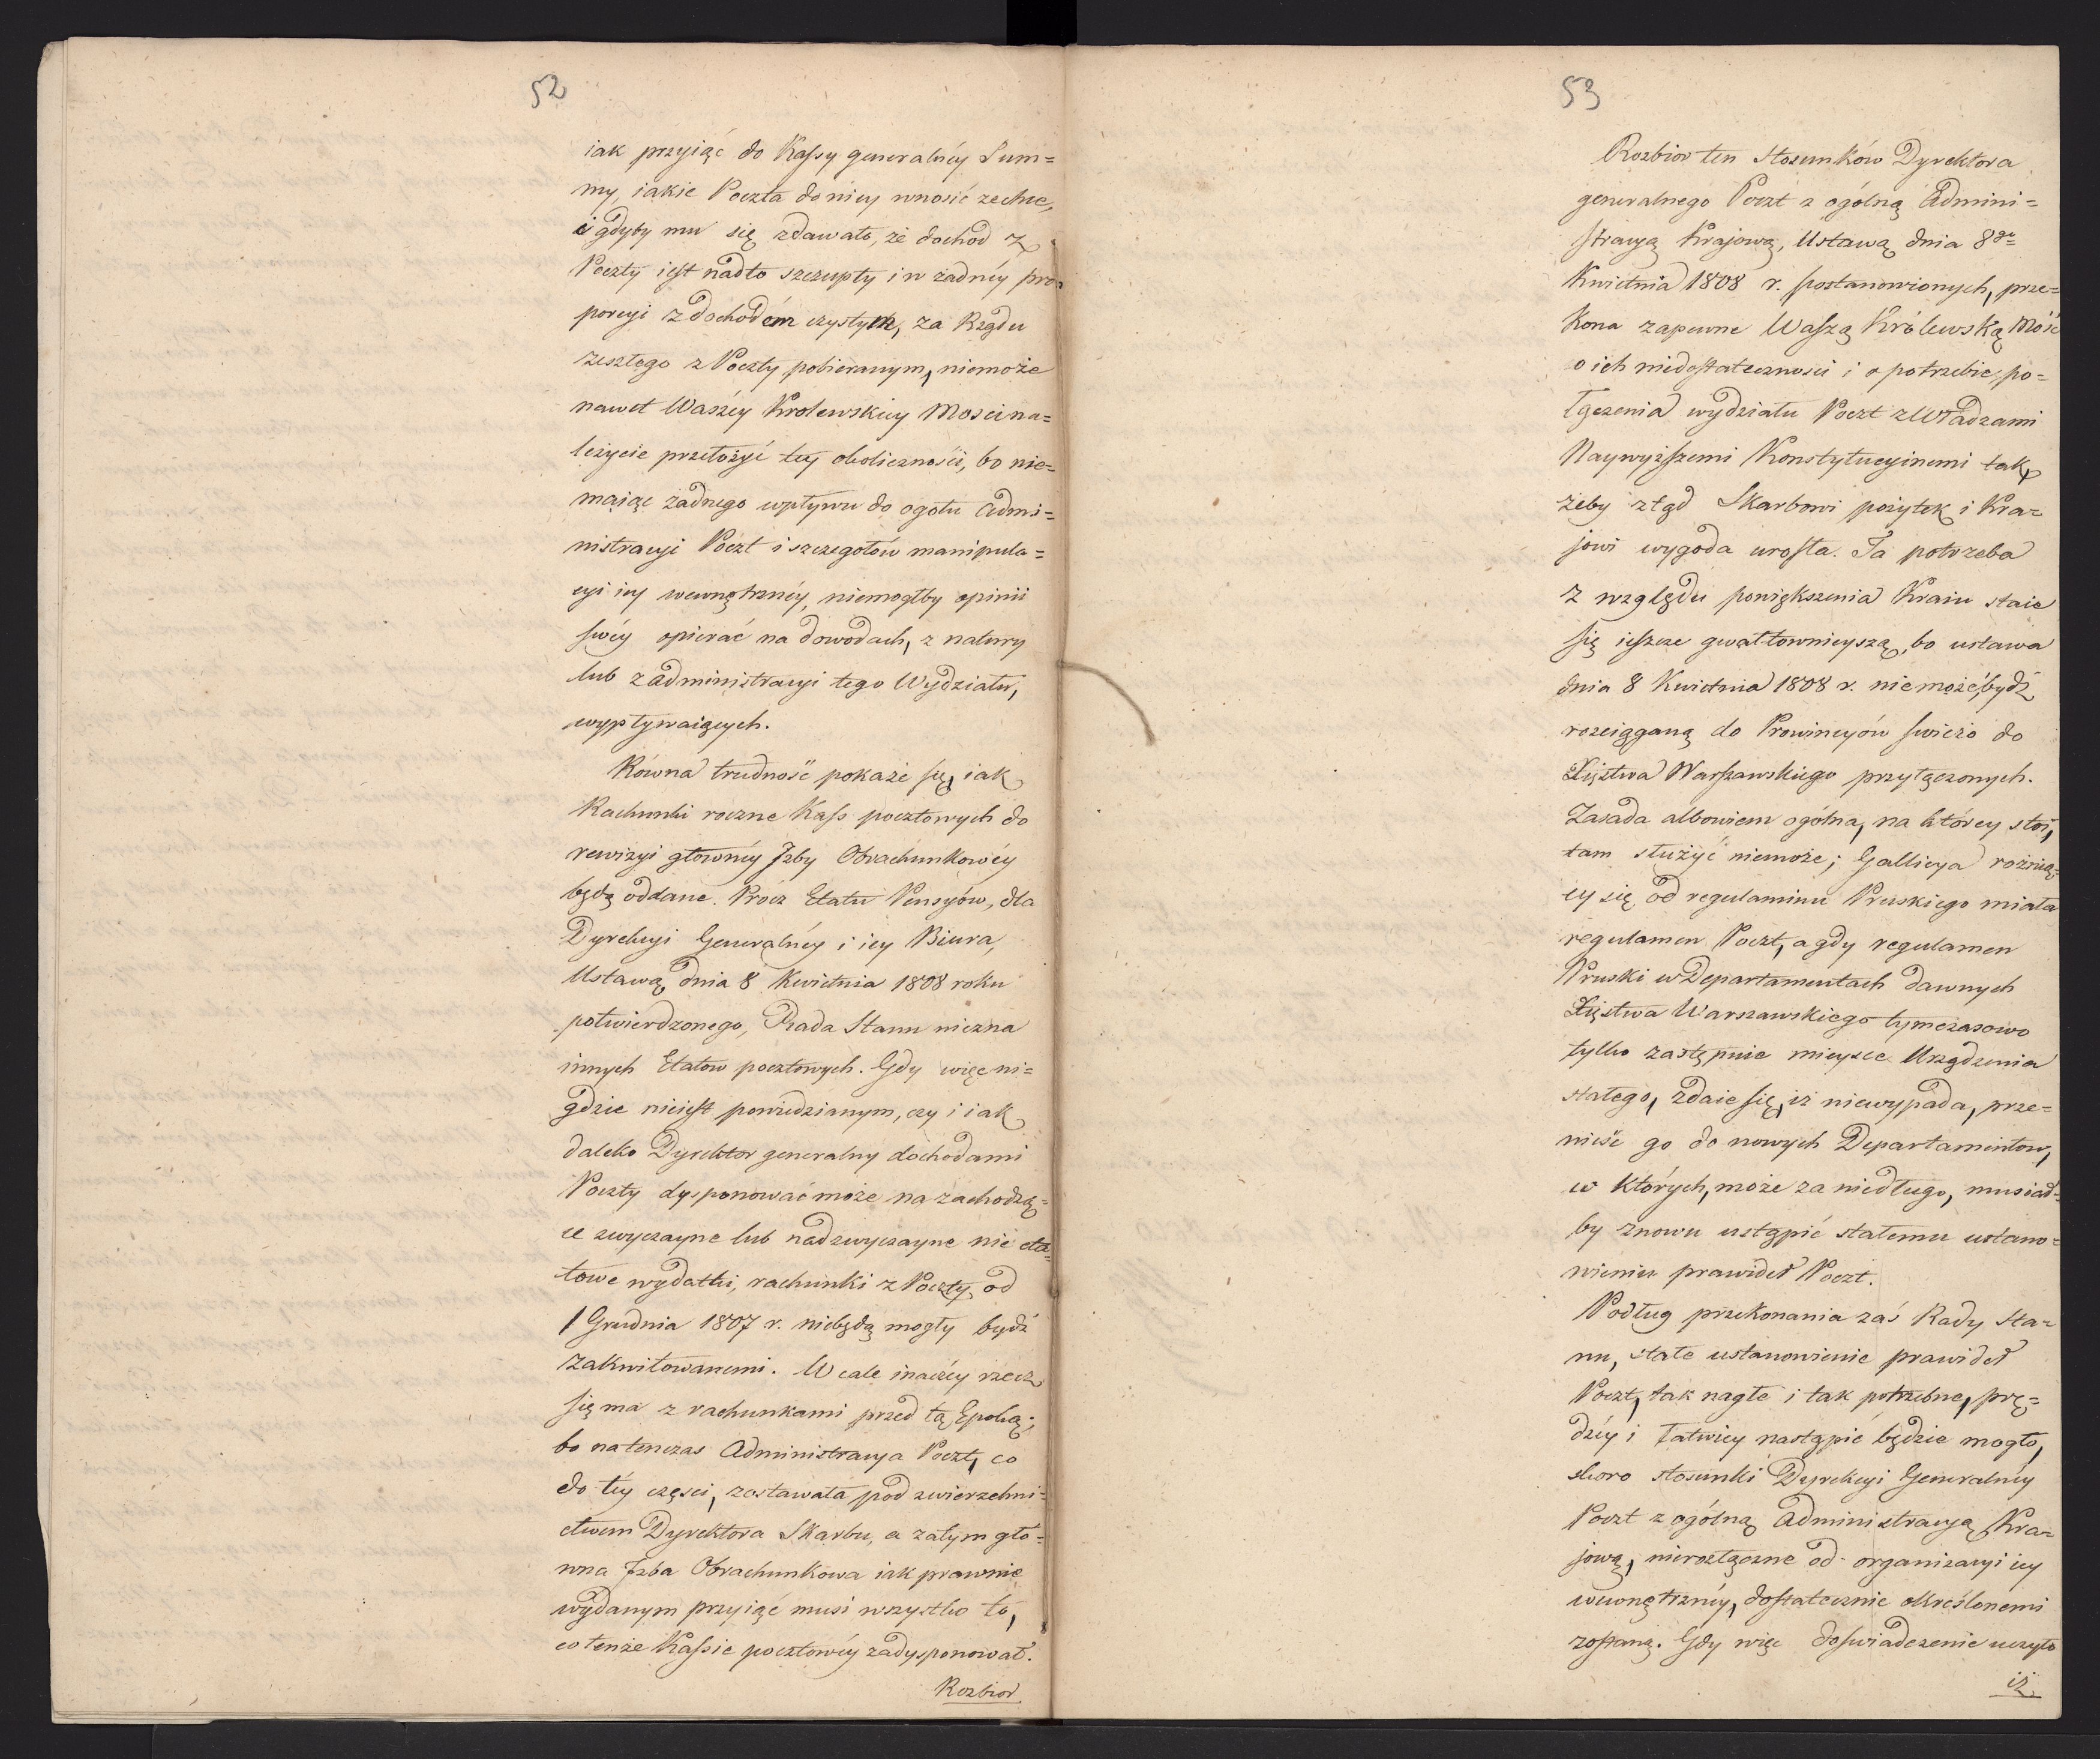 52
iak przyiąć do Kassy generalnéy Sum=
my, iakie Poczta do niey wnosić zechce,
i gdyby mu się zdawało, że dochod z
Poczty iest nadto szczupły i w żadnéy pro=
porcyi z dochodém czystym, za Rządu
zeszłego z Poczty pobieranym, niemoże
nawet Waszéy Krolewskiey Mosci na=
leżycie przełożyć tey okoliczności, bo nie=
maiąc żadnego wpływu do ogołu Admi=
nistracyi Poczt i szczegołów manipula=
cyi iey wewnętrznéy, niemogłby opinii
swéy opierać na dowodach, z natury
lub z administracyi tego Wydziału,
wypływaiących.
Równa trudność pokaże się, iak
Rachunki roczne Kass pocztowych do
rewizyi głownéy Izby Obrachunkowéy
będą oddane. Prócz Etatu Pensyów, dla
Dyrekcyi Generalnéy i iey Biura,
Ustawą dnia 8 Kwietnia 1808 roku
potwierdzonego, Rada Stanu niezna
innych Etatow pocztowych. Gdy więc ni=
gdzie nieiest powiedzianym, czy i iak
daleko Dyrektor generalny dochodami
Poczty dysponować może na zachodzą=
ce zwyczayne lub nadzwyczayne nie eta=
towe wydatki, rachunki z Poczty od
1 Grudnia 1807 r. niebędą mogły bydź
zakwitowanemi. Wcale inaczéy rzecz
się ma z rachunkami przed tą Epoką;
bo natenczas Administracya Poczt, co
do téy części, zostawała pod zwierzchni=
ctwem Dyrektora Skarbu, a zatym głó=
wna Izba Obrachunkowa iak prawnie
wydanym przyiąć musi wszystko to,
co tenże Kassie pocztowéy zadysponował.
Rozbior
53
Rozbior ten stosunków Dyrektora
generalnego Poczt z ogólną Admini=
stracyą Krajową, Ustawą dnia 8go
Kwietnia 1808 r. postanowionych, prze=
kona zapewne Waszą Królewską Mość
o ich niedostateczności i o potrzebie po=
łączenia wydziału Poczt z Władzami
Naywyższemi Konstytucyinemi tak,
żeby ztąd Skarbowi pożytek i Kra=
jowi wygoda urosła. Ta potrzeba
z względu powiększenia Kraiu staie
się ieszcze gwałtownieyszą, bo ustawa
dnia 8 Kwietnia 1808 r. nie może bydź
rozciągganą do Prowincyów swieżo do
Xięstwa Warszawskiego przyłączonych.
Zasada albowiem ogólna, na któréy stoi,
tam służyć niemoże; Gallicya rożnią=
cy się od regulaminu Pruskiego miała
regulamen Poczt, a gdy regulamen
Pruski w Departamentach dawnych
Xięstwa Warszawskiego tymczasowo
tylko zastępuie mieysce Urządzenia
stałego, zdaie się, iż niewypada, prze=
nieść go do nowych Departamentow,
w których, może za niedługo, musiał=
by znowu ustąpić stałemu ustano=
wieniu prawideł Poczt.
Podług przekonania zaś Rady Sta=
nu, stałe ustanowienie prawideł
Poczt, tak nagłe i tak potrzebne, prę=
dzéy i łatwiey nastąpić będzie mogło,
skoro stosunki Dyrekcyi Generalnéy
Poczt z ogólną Administracyą Kra=
jową, nierozłączne od organizacyi iey
wewnętrznéy, dostatecznie określonemi
zostaną. Gdy więc doświadczenie uczyło
iż